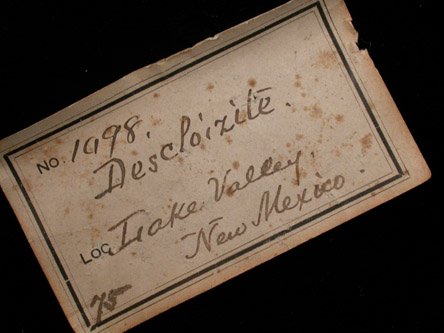 NO. 1998.
Descloizite.
LOC Lake Valley,
New Mexico.
75